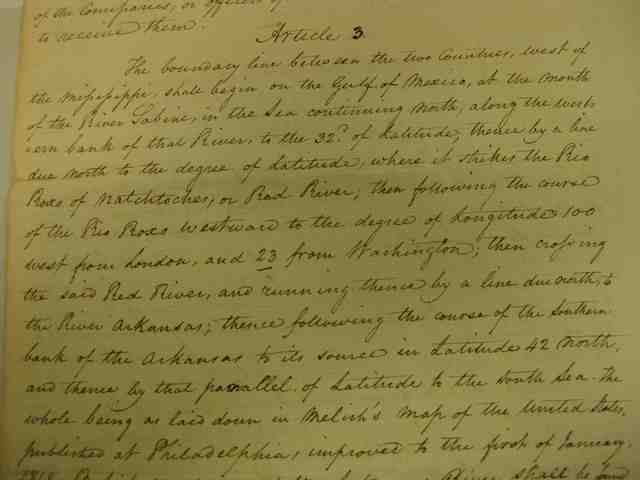 of the Companies, or officers of
to receive them.
Article 3
The boundary line between the two Countries, west of
the Mississippi, shall begin on the Gulf of Mexico, at the mouth
of the River Sabine, in the Sea continuing North, along the west-
ern bank of that River, to the 32d of Latitude; thence by a line
due north to the degree of Latitude, where it strikes the Rio
Roxo of Natchitoches, or Red River; then following the course
of the Rio Roxo Westward to the degree of Longitude 100
west from London, and 23 from Washington; then crossing
the said Red River, and running thence by a line due north, to
the River Arkansas; thence following the course of the Southern
bank of the Arkansas to its source in Latitude 42 North,
and thence by that parallel of Latitude to the South Sea. The
whole being as laid down in Melish's Map of the United States,
published at Philadelphia, improved to the first of January,
1818. River shall be found